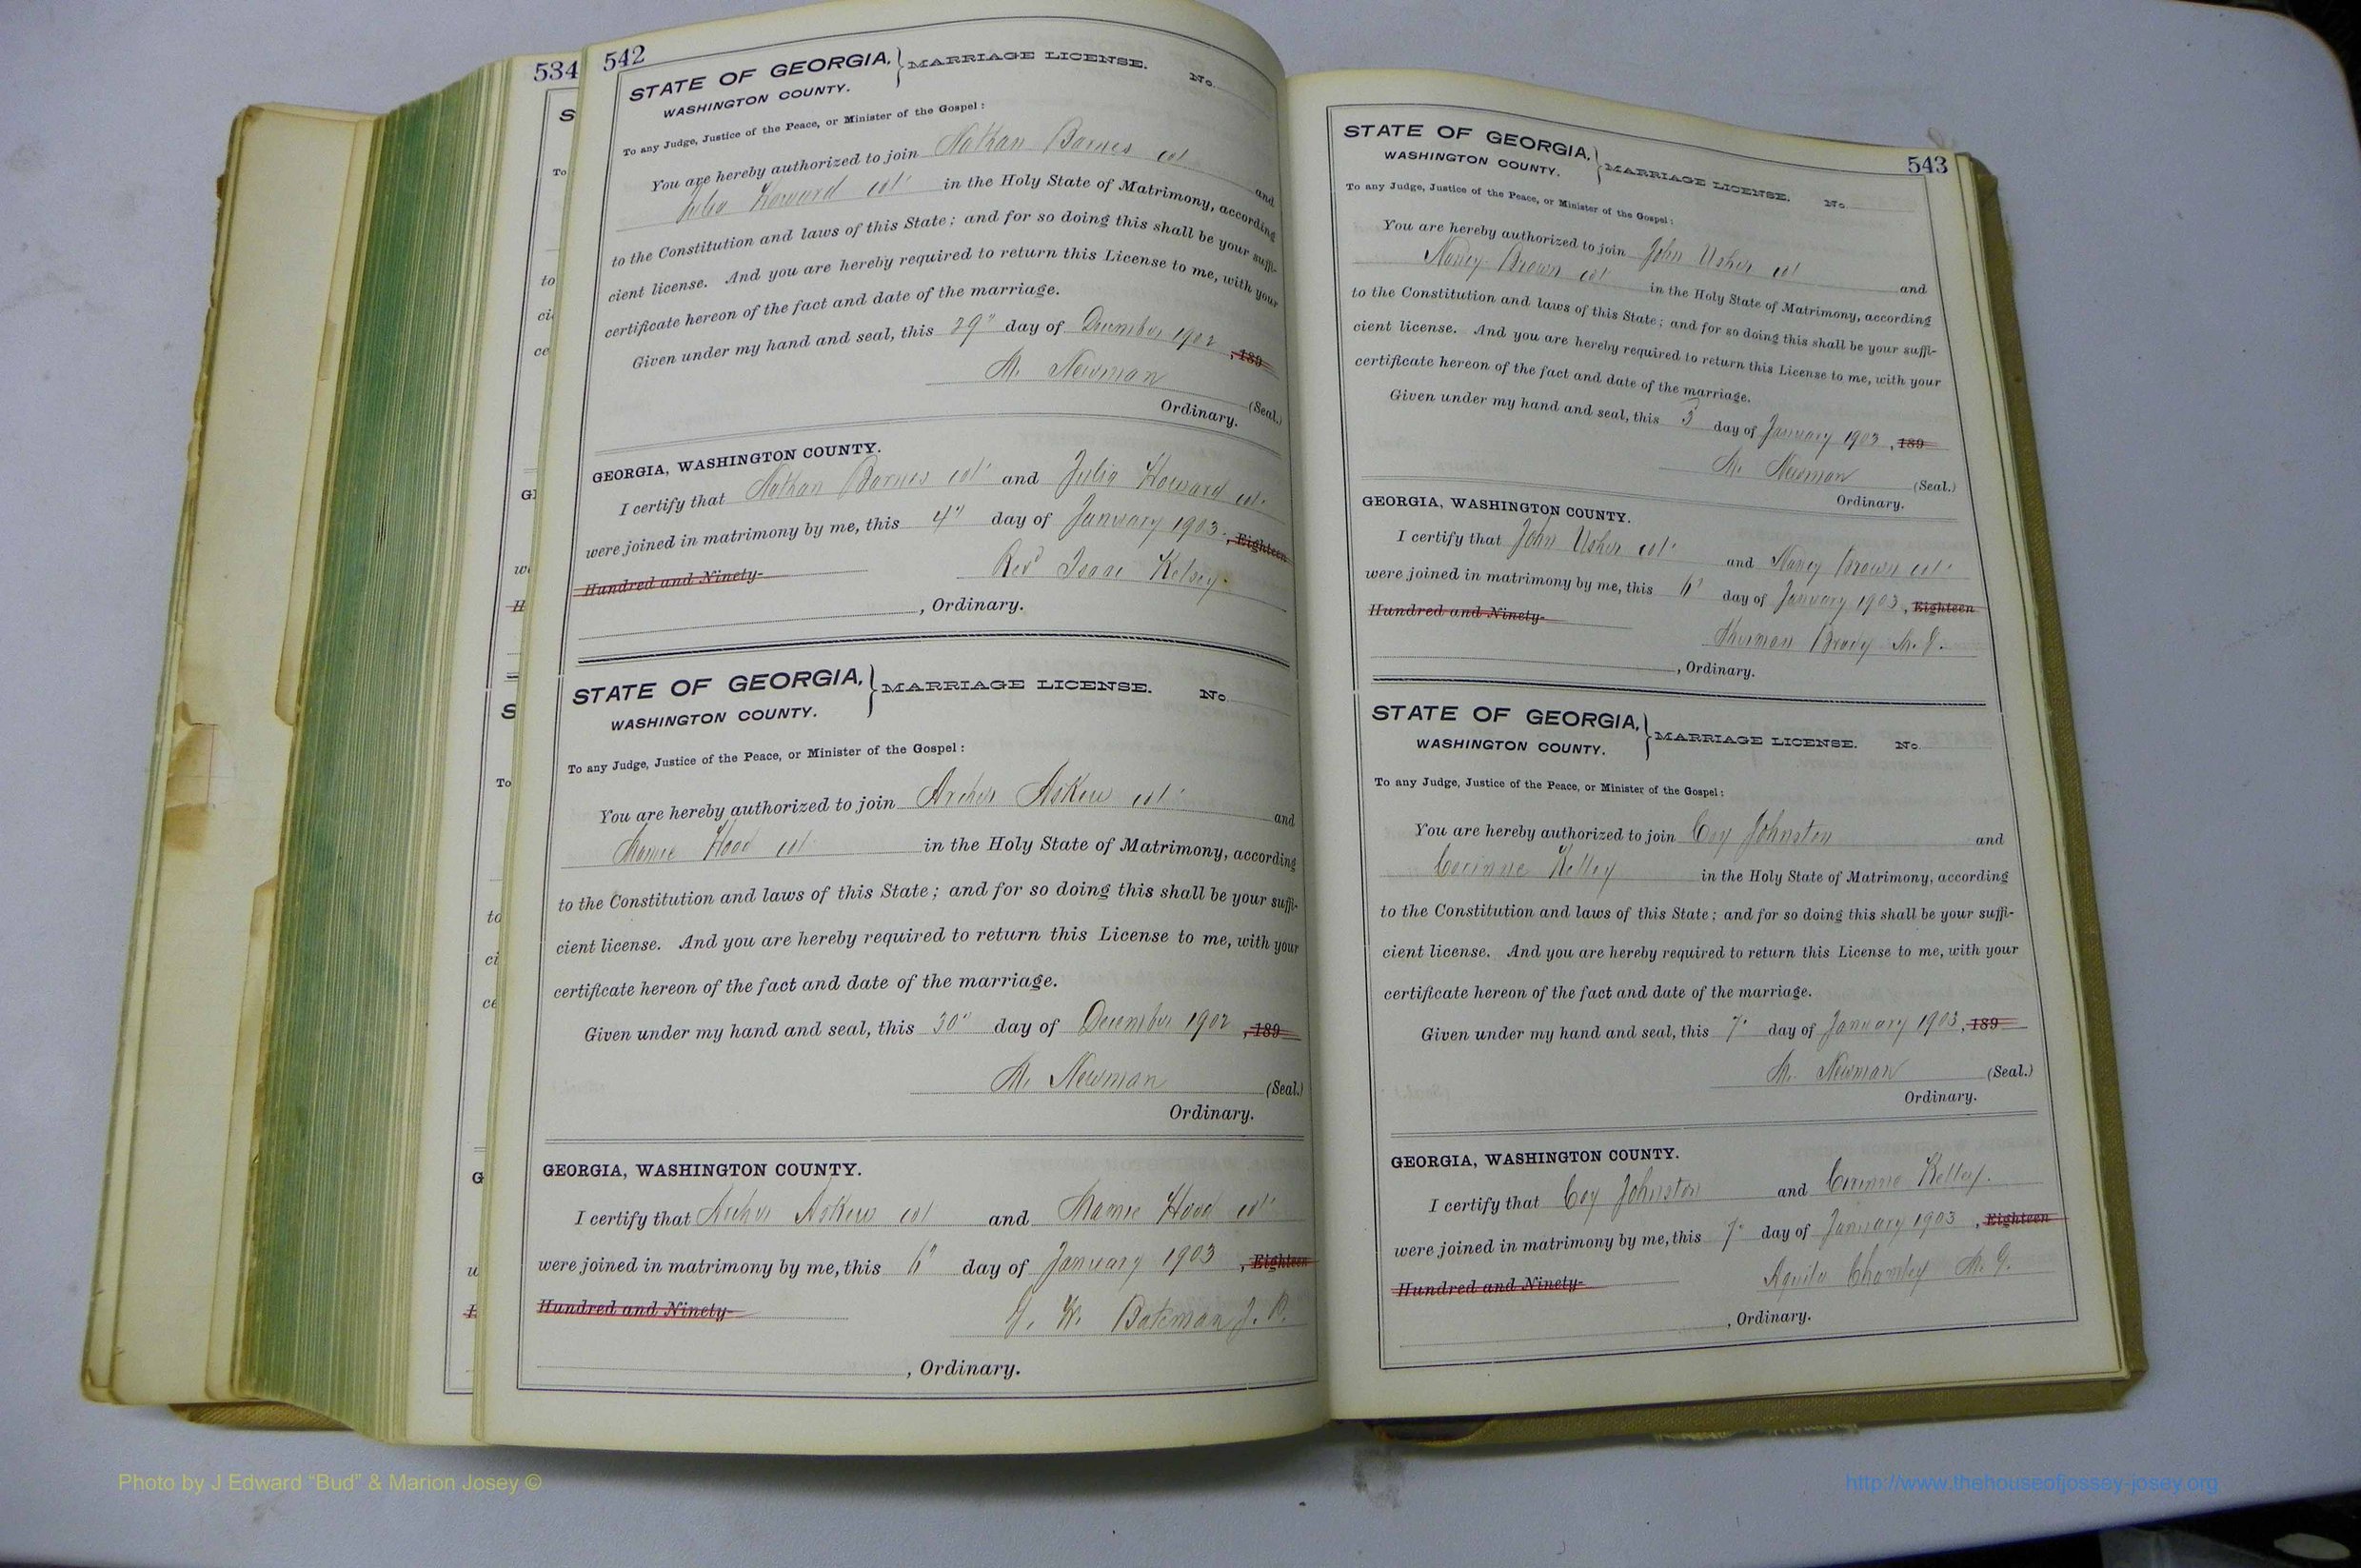 534
542
STATE OF GEORGIA, MARRIAGE LICENSE. No.
WASHINGTON COUNTY.
To any Judge, Justice of the Peace, or Minister of the Gospel:
You are hereby authorized to join Nathan Barnes col and
Julia Howard col in the Holy State of Matrimony, according
to the Constitution and laws of this State; and for so doing this shall be your suffi-
cient license. And you are hereby required to return this License to me, with your
certificate hereon of the fact and date of the marriage.
Given under my hand and seal, this 29" day of December 1902, 189
M. Newman (Seal.)
Ordinary.
GEORGIA, WASHINGTON COUNTY.
I certify that Nathan Barnes col and Julia Howard col
were joined in matrimony by me, this 4" day of January 1903, Eighteen
Hundred and Ninety- Rev Isaac Kelsey
, Ordinary.
STATE OF GEORGIA, MARRIAGE LICENSE. No.
WASHINGTON COUNTY.
To any Judge, Justice of the Peace, or Minister of the Gospel:
You are hereby authorized to join Archer Askew col and
Mamie Hood col in the Holy State of Matrimony, according
to the Constitution and laws of this State; and for so doing this shall be your suffi-
cient license. And you are hereby required to return this License to me, with your
certificate hereon of the fact and date of the marriage.
Given under my hand and seal, this 30" day of December 1902, 189
M. Newman (Seal.)
Ordinary.
GEORGIA, WASHINGTON COUNTY.
I certify that Archer Askew col and Mamie Hood col
were joined in matrimony by me, this 6" day of January 1903, Eighteen
Hundred and Ninety- W. Bateman J. P.
, Ordinary.
543
STATE OF GEORGIA, MARRIAGE LICENSE. No.
WASHINGTON COUNTY.
To any Judge, Justice of the Peace, or Minister of the Gospel:
You are hereby authorized to join John Usher col and
Nancy Brown col in the Holy State of Matrimony, according
to the Constitution and laws of this State; and for so doing this shall be your suffi-
cient license. And you are hereby required to return this License to me, with your
certificate hereon of the fact and date of the marriage.
Given under my hand and seal, this 3 day of January 1903, 189
M. Newman (Seal.)
Ordinary.
GEORGIA, WASHINGTON COUNTY.
I certify that John Usher col and Nancy Brown col
were joined in matrimony by me, this 6 day of January 1903, Eighteen
Hundred and Ninety- Thurman Brady M. G.
, Ordinary.
STATE OF GEORGIA, MARRIAGE LICENSE. No.
WASHINGTON COUNTY.
To any Judge, Justice of the Peace, or Minister of the Gospel:
You are hereby authorized to join Coy Johnston and
Corinne Kelley in the Holy State of Matrimony, according
to the Constitution and laws of this State; and for so doing this shall be your suffi-
cient license. And you are hereby required to return this License to me, with your
certificate hereon of the fact and date of the marriage.
Given under my hand and seal, this 7" day of January 1903, 189
M. Newman (Seal.)
Ordinary.
GEORGIA, WASHINGTON COUNTY.
I certify that Coy Johnston and Corinne Kelley.
were joined in matrimony by me, this 7" day of January 1903, Eighteen
Hundred and Ninety- Aquila Chamley M. G.
, Ordinary.
Photo by J Edward “Bud” & Marion Josey ©
http://www.thehouseofjossey-josey.org